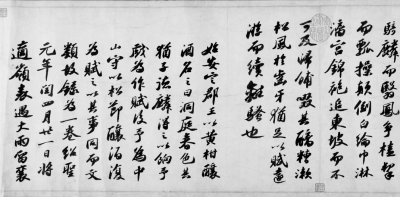 騎麟而翳鳳爭榼挈
而瓢操顛倒白綸巾淋
漓宮錦袍追東坡而不
可及歸餔歠其醨糟漱
松風於齒牙猶足以賦遠
遊而續離騷也
始安定郡王以黄柑釀
酒名之曰洞庭春色其
猶子德麟得之以餉予
戲為作賦後予為中
山守以松節釀酒復
為賦之以其事同而文
類故錄為一卷紹聖
元年閏四月廿一日將
適嶺表遇大雨留襄